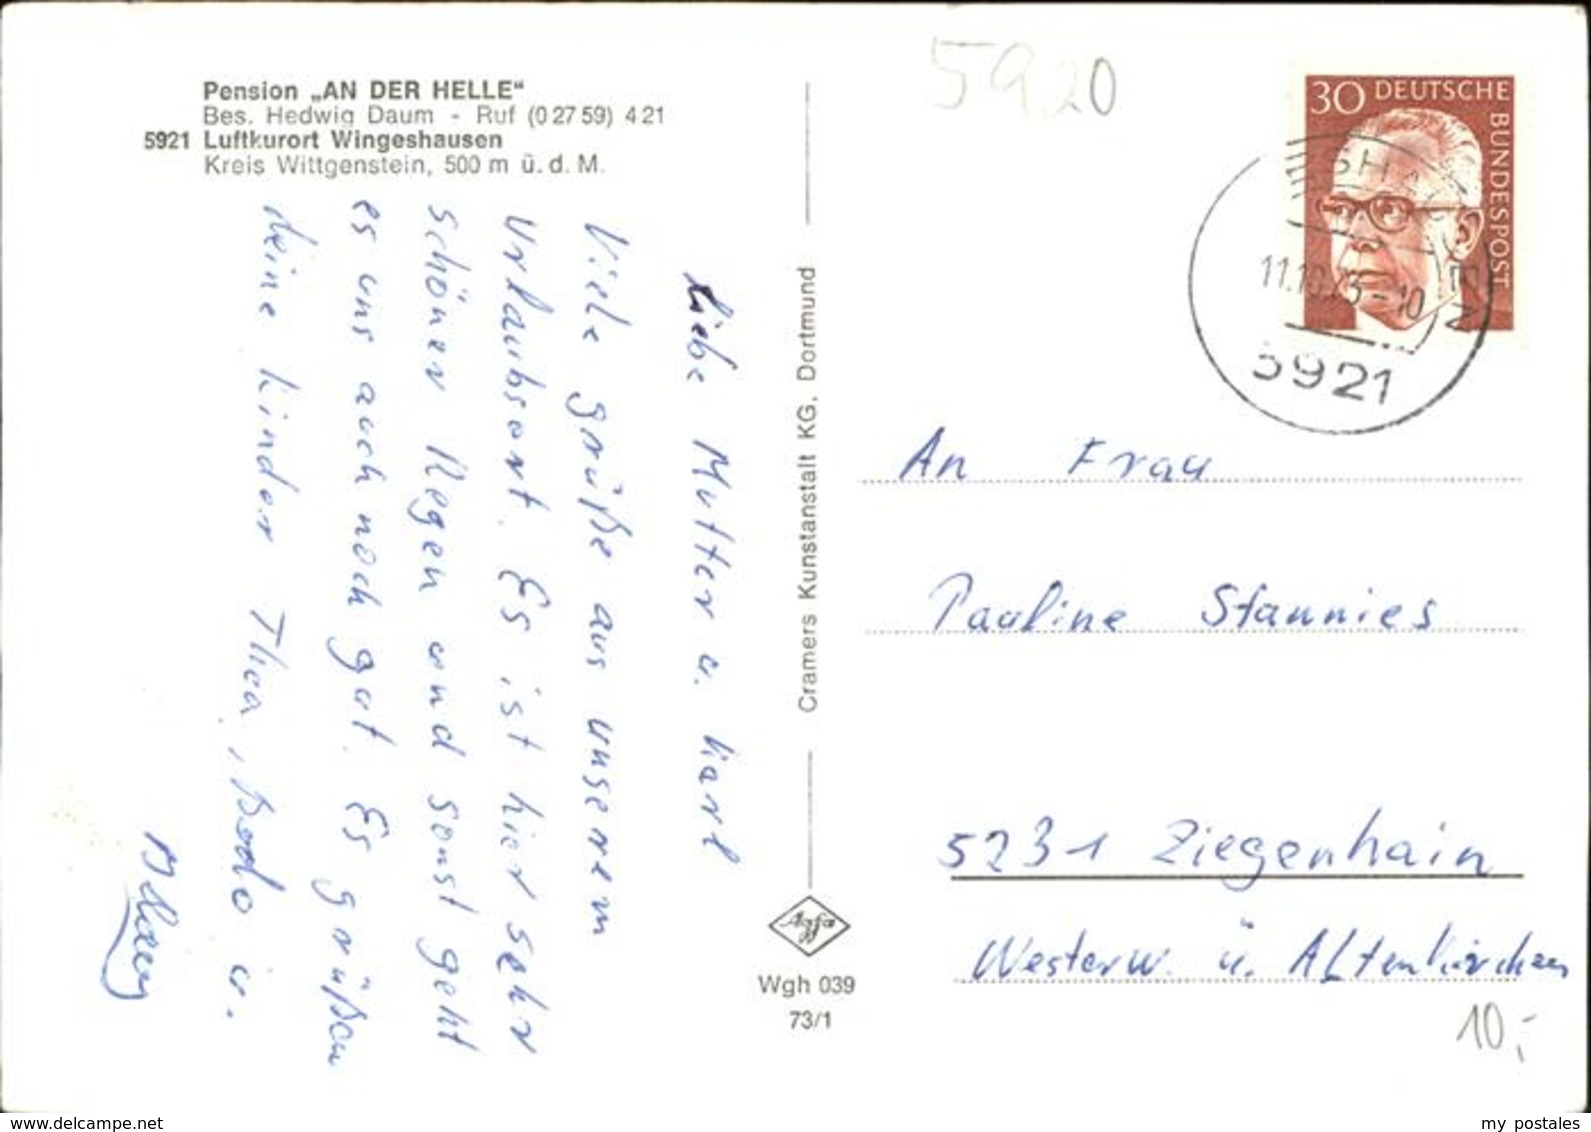 5920
Pension „AN DER HELLE“
Bes. Hedwig Daum - Ruf (0 27 59) 4 21
5921 Luftkurort Wingeshausen
Kreis Wittgenstein, 500 m ü. d. M.
Liebe Mutter u. Karl
Viele grüße aus unserem
Urlaubsort. Es ist hier sehr
schöner Regen und sonst geht
es uns auch noch gut. Es grüßen
deine Kinder Thea, Bodo u.
Cramers Kunstanstalt KG, Dortmund
Agfa
Wgh 039
73/1
30 DEUTSCHE
BUNDESPOST
SHAUSEN
11.10.73-10
5921
An Frau
Pauline Stannies
5231 Ziegenhain
Westerw. ü. Altenkirchen
10,-
www.delcampe.net
my_postales